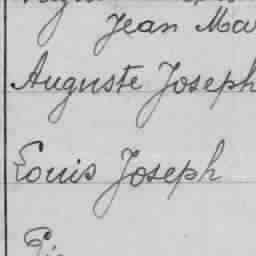 Jean Ma
Auguste Joseph
Louis Joseph